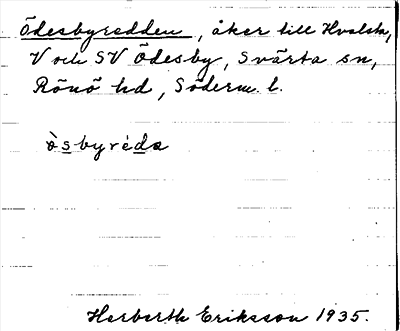 Ödesbyredden, åker till Hvalsta,
V och SV Ödesby, Svärta sn,
Rönö hd, Söderm. l.
òsbyréda
Herberth Eriksson 1935.